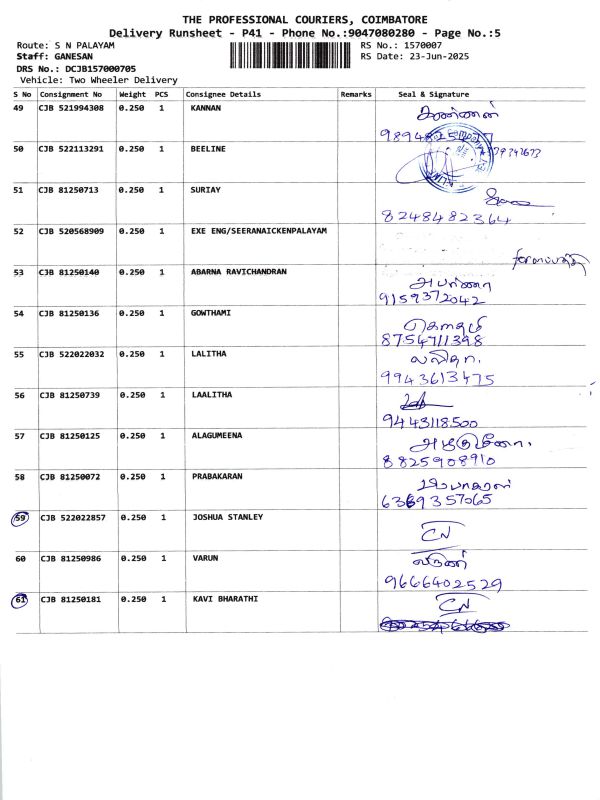 THE PROFESSIONAL COURIERS, COIMBATORE
Delivery Runsheet - P41 - Phone No.:9047080280 - Page No.:5
Route: S N PALAYAM RS No.: 1570007
Staff: GANESAN RS Date: 23-Jun-2025
DRS No.: DCJB157000705
Vehicle: Two Wheeler Delivery
S No Consignment No Weight PCS Consignee Details Remarks Seal & Signature
49 CJB 521994308 0.250 1 KANNAN கண்ணன்
50 CJB 522113291 0.250 1 BEELINE
51 CJB 81250713 0.250 1 SURIAY
8248482364
52 CJB 520568909 0.250 1 EXE ENG/SEERANAICKENPALAYAM
53 CJB 81250140 0.250 1 ABARNA RAVICHANDRAN அபர்ணா
9159372042
54 CJB 81250136 0.250 1 GOWTHAMI கௌதமி
8754711398
55 CJB 522022032 0.250 1 LALITHA லலிதா
9943613475
56 CJB 81250739 0.250 1 LAALITHA
9443118500
57 CJB 81250125 0.250 1 ALAGUMEENA
8825908910
58 CJB 81250072 0.250 1 PRABAKARAN
6369357065
59 CJB 522022857 0.250 1 JOSHUA STANLEY CN
60 CJB 81250986 0.250 1 VARUN வருண்
9666402529
61 CJB 81250181 0.250 1 KAVI BHARATHI CN